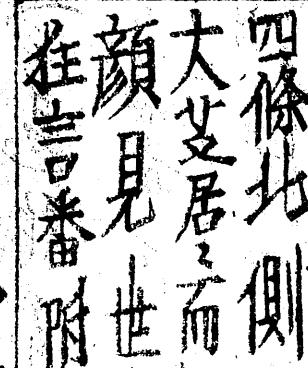 四條北側
大芝居ニ而
顔見世
狂言番附